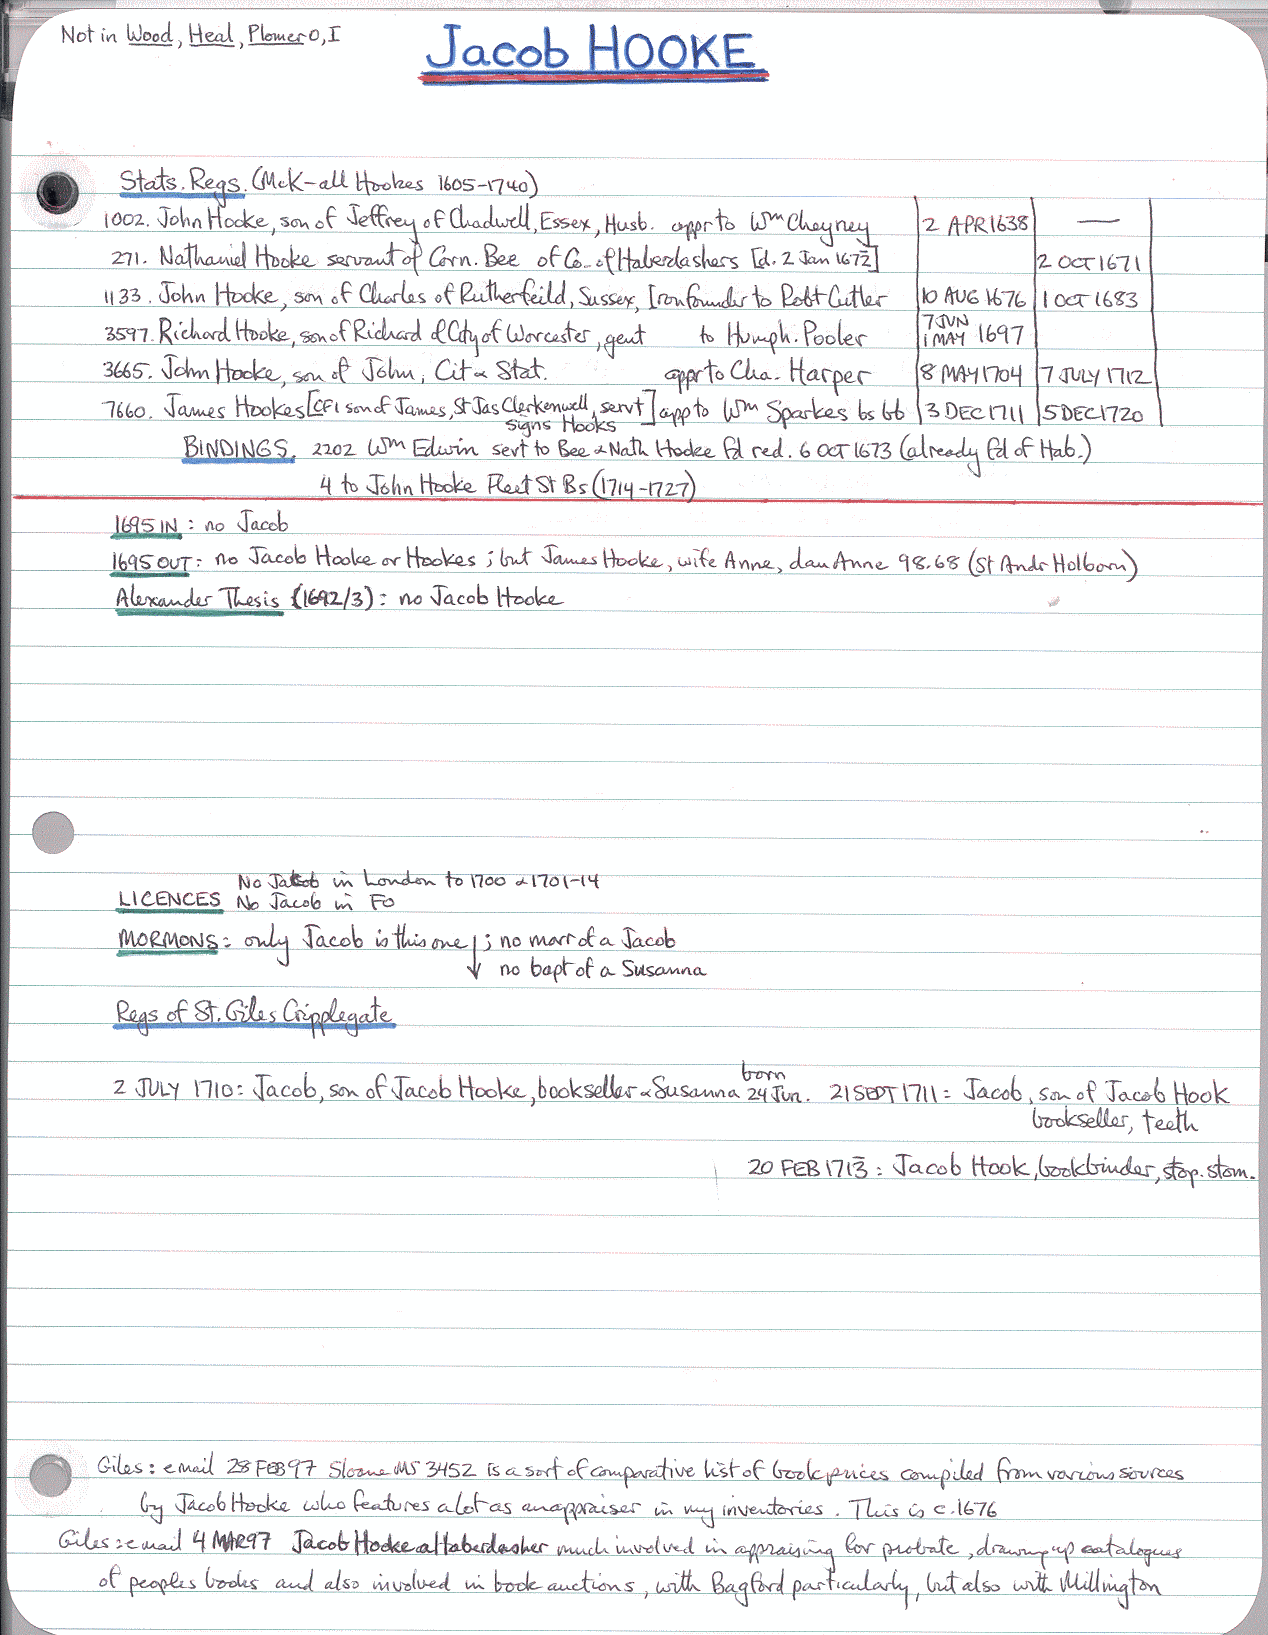 Not in Wood, Heal, Plomer O, I
Jacob HOOKE
Stats. Regs. (McK-all Hookes 1605-1740)
1002. John Hooke, son of Jeffrey of Chadwell, Essex, Husb. appr to Wm Cheyney 2 APR 1638 —
271. Nathaniel Hooke servant of Corn. Bee of Co. of Haberdashers [d. 2 Jan 1672] 2 OCT 1671
1133. John Hooke, son of Charles of Rutherfeild, Sussex, Ironfounder to Robt Cutler 10 AUG 1676 1 OCT 1683
3597. Richard Hooke, son of Richard of City of Worcester, gent to Humph. Pooler 7 JUN 1 MAY 1697
3665. John Hooke, son of John, Cit & Stat. appr to Cha. Harper 8 MAY 1704 7 JULY 1712
7660. James Hookes [CF1 son of James, St Jas Clerkenwell, servt] app to Wm Sparkes bs bb 3 DEC 1711 5 DEC 1720
signs Hooks
BINDINGS. 2202 Wm Edwin servt to Bee & Nath Hooke fd red. 6 OCT 1673 (already fd of Hab.)
4 to John Hooke Fleet St Bs (1714-1727)
1695 IN : no Jacob
1695 OUT : no Jacob Hooke or Hookes ; but James Hooke, wife Anne, dau Anne 98.68 (St Andr Holborn)
Alexander Thesis (1692/3) : no Jacob Hooke
No Jacob in London to 1700 & 1701-14
LICENCES No Jacob in FO
MORMONS : only Jacob is this one ↓ ; no marr of a Jacob
no bapt of a Susanna
Regs of St. Giles Cripplegate
born
2 JULY 1710 : Jacob, son of Jacob Hooke, bookseller & Susanna 24 Jun. 21 SEPT 1711 = Jacob, son of Jacob Hook
bookseller, teeth
20 FEB 1713 : Jacob Hook, bookbinder, stop. stom.
Giles : email 28 FEB 97 Sloane MS 3452 is a sort of comparative list of book prices compiled from various sources
by Jacob Hooke who features a lot as an appraiser in my inventories. This is c.1676
Giles : email 4 MAR 97 Jacob Hooke a Haberdasher much involved in appraising for probate, drawing up catalogues
of peoples books and also involved in book auctions, with Bagford particularly, but also with Millington